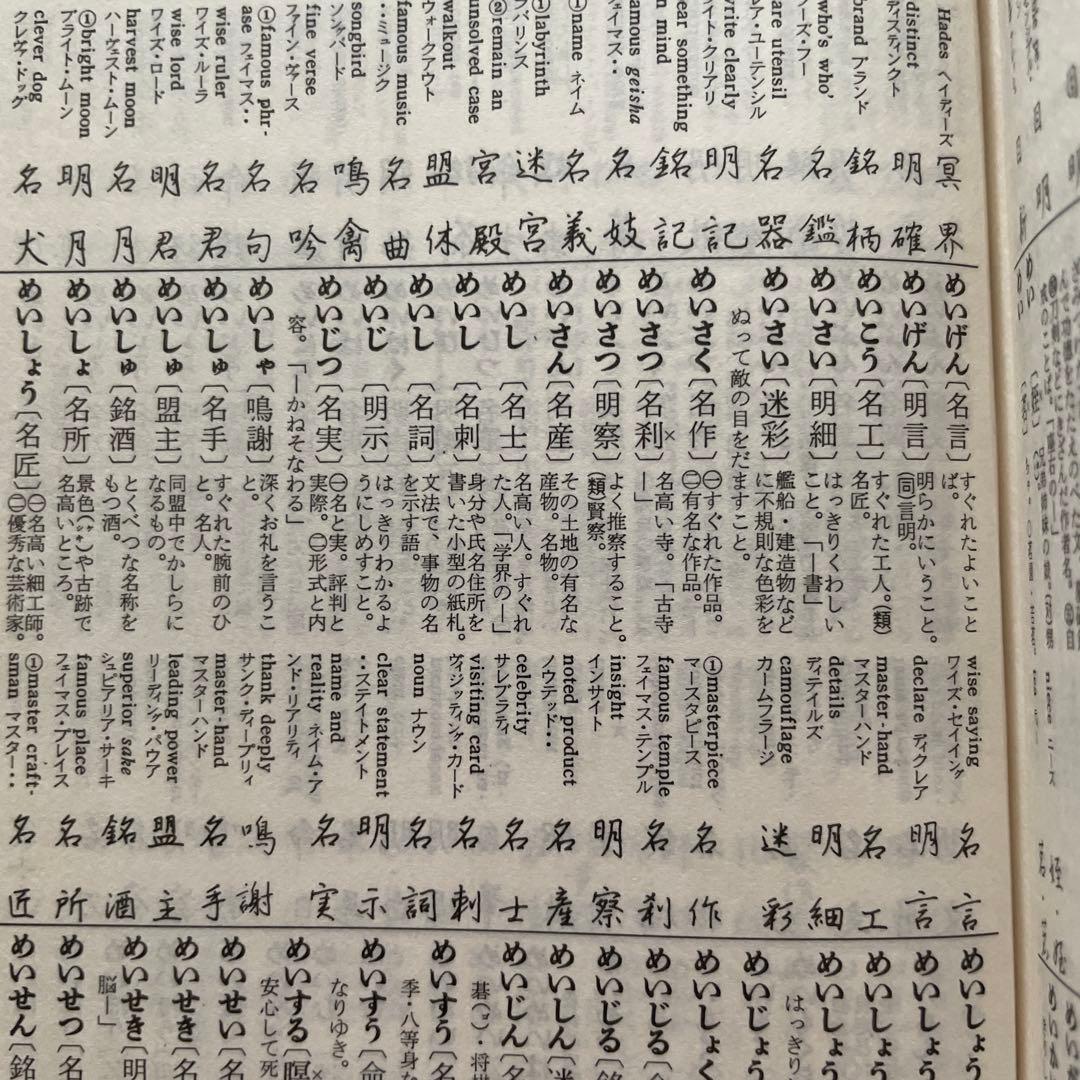 Hades ヘイディーズ
冥界
distinct
ディスティンクト
明確
brand ブランド
銘柄
who's who'
フーズ・フー
名鑑
are utensil
ア・ユーテンシル
名器
write clearly
ライト・クリアリ
明記
ear something
n mind
銘記
amous geisha
フェイマス・・
名妓
①name ネイム
名義
①labyrinth
ラバリンス
迷宮
②remain an
unsolved case
宮殿
walkout
ウォークアウト
盟休
famous music
・・ミュージック
名曲
songbird
ソングバード
鳴禽
fine verse
ファイン・ヴァース
名吟
①famous phr-
ase フェイマス・・
名句
wise ruler
ワイズ・ルーラ
名君
wise lord
ワイズ・ロード
明君
harvest moon
ハーヴェスト・ムーン
名月
①bright moon
ブライト・ムーン
明月
clever dog
クレヴァ・ドッグ
名犬
めいげん〔名言〕すぐれたよいこと
ば。
wise saying
ワイズ・セイイング
名言
めいげん〔明言〕明らかにいうこと。
(同)言明。
declare ディクレア
明言
めいこう〔名工〕すぐれた工人。(類)
名匠。
master-hand
マスターハンド
名工
めいさい〔明細〕はっきりくわしい
こと。「―書」
details
ディテイルズ
明細
めいさい〔迷彩〕艦船・建造物など
に不規則な色彩を
ぬって敵の目をだますこと。
camouflage
カームフラージ
迷彩
めいさく〔名作〕㊀すぐれた作品。
㊁有名な作品。
①masterpiece
マースタピース
名作
めいさつ〔名刹×〕名高い寺。「古寺
―」
famous temple
フェイマス・テンプル
名刹
めいさつ〔明察〕よく推察すること。
(類)賢察。
insight
インサイト
明察
めいさん〔名産〕その土地の有名な
産物。名物。
noted product
ノウテッド・・
名産
めいし〔名士〕名高い人。すぐれ
た人。「学界の―」
celebrity
サレブラティ
名士
めいし〔名刺〕身分や氏名住所を
書いた小型の紙札。
visiting card
ヴィジッティング・カード
名刺
めいし〔名詞〕文法で、事物の名
を示す語。
noun ナウン
名詞
めいじ〔明示〕はっきりわかるよ
うにしめすこと。
clear statement
・・ステイトメント
明示
めいじつ〔名実〕㊀名と実。評判と
実際。㊁形式と内
容。「―かねそなわる」
name and
reality ネイム・ア
ンド・リアリティ
名実
めいしゃ〔鳴謝〕深くお礼を言うこ
と。
thank deeply
サンク・ディープリィ
鳴謝
めいしゅ〔名手〕すぐれた腕前のひ
と。名人。
master-hand
マスターハンド
名手
めいしゅ〔盟主〕同盟中でかしらに
なるもの。
leading power
リーディング・パウア
盟主
めいしゅ〔銘酒〕とくべつな名称を
もつ酒。
superior sake
シュピアリア・サーキ
銘酒
めいしょ〔名所〕景色(しき)や古跡で
名高いところ。
famous place
フェイマス・プレイス
名所
めいしょう〔名匠〕㊀名高い細工師。
㊁優秀な芸術家。
①master craft-
sman マスター・・
名匠
めいしょう
めいしょう
めいしょう
はっきり
めいじょう
めいしょく
めいじる
めいじる〔銘
めいしん〔迷
めいじん〔名
碁(ご)・将棋
めいすう〔名
季・八等身な
めいすう〔命
なりゆき。
めいする〔瞑×
安心して死
めいせい〔名
めいせき〔名
めいせき〔明
脳―」
めいせつ〔名
めいせん〔銘